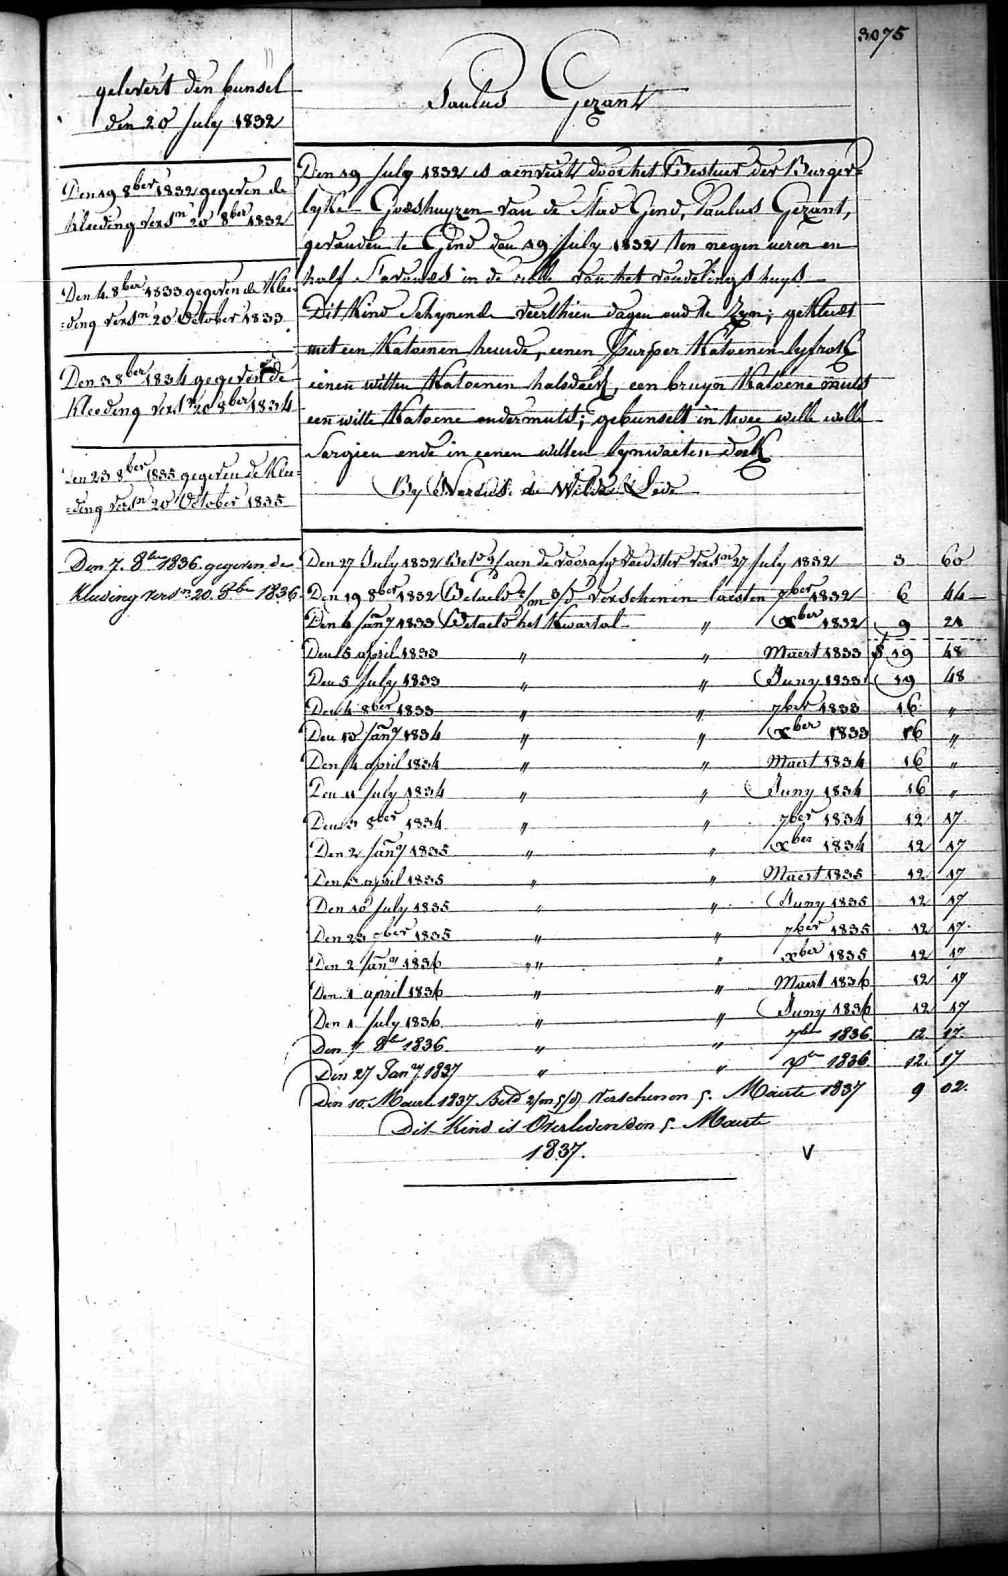 3075
gelevert den bunsel
den 20 July 1832
Paulus Gezant
Den 19 8ber 1832 gegeven de
kleeding versn 20 8ber 1832
Den 4 8ber 1833 gegeven de Klee-
=ding versn 20 October 1833
Den 3 8ber 1834 gegeven de
Kleeding versn 20 8ber 1834
Den 23 8ber 1835 gegeven de Klee-
=ding versn 20 October 1835
Den 7. 8ber 1836 gegeven de
Kleeding versn 20. 8ber 1836
Den 19 July 1832 is aenveirt door het Bestuer der Burger=
lyke Godshuyzen van de Stad Gend, Paulus Gezant,
gevonden te Gend den 19 July 1832 ten negen ueren en
half S'avonds in de rolle van het vondelings huys
Dit Kind Schynende veerthien dagen oud te Zyn; gekleed
met een Katoenen hemde, eenen Purper Katoenen lyfrok
eenen witten Katoenen halsdoek, een bruyn Katoene muts
een witte Katoene ondermuts; gebunselt in twee witte wolle
Sargien ende in eenen witten lynwaeten doek
By de Wilde Lede
Den 27 July 1832 Betd aen de voorafge voedster versn 27 July 1832 3 60
Den 19 8ber 1832 Betaeld verschenen laesten 7ber 1832 6 44
Den 6 Jany 1833 Betaeld het Kwartal " xber 1832 9 24
Den 5 april 1833 " " Maert 1833 19 48
Den 5 July 1833 " " Juny 1833 19 48
Den 4 8ber 1833 " " 7ber 1833 16 "
Den 10 Jany 1834 " " xber 1833 16 "
Den 4 april 1834 " " Maert 1834 16 "
Den 11 July 1834 " " Juny 1834 16 "
Den 3 8ber 1834 " " 7ber 1834 12 17
Den 2 Jany 1835 " " xber 1834 12 17
Den 5 april 1835 " " Maert 1835 12 17
Den 10 July 1835 " " Juny 1835 12 17
Den 23 8ber 1835 " " 7ber 1835 12 17
Den 2 Jany 1836 " " xber 1835 12 17
Den 1 april 1836 " " Maert 1836 12 17
Den 1 July 1836 " " Juny 1836 12 17
Den 7 8br 1836 " " 7ber 1836 12 17
Den 27 Jany 1837 " " xber 1836 12. 17
Den 10. Maert 1837 Betd 2/m 5/d Verschenen 5. Maerte 1837 9 02.
Dit Kind is Overleden den 5. Maerte
1837. V